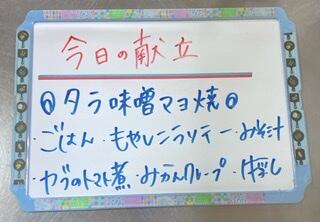 今日の献立
◎タラ味噌マヨ焼◎
・ごはん・もやしニラソテー・みそ汁
・カブのトマト煮・みかんクレープ・